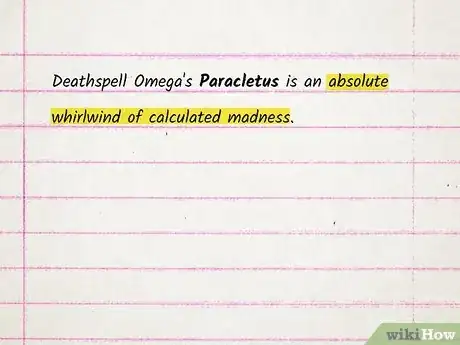 Deathspell Omega's Paracletus is an absolute
whirlwind of calculated madness.
wikiHow